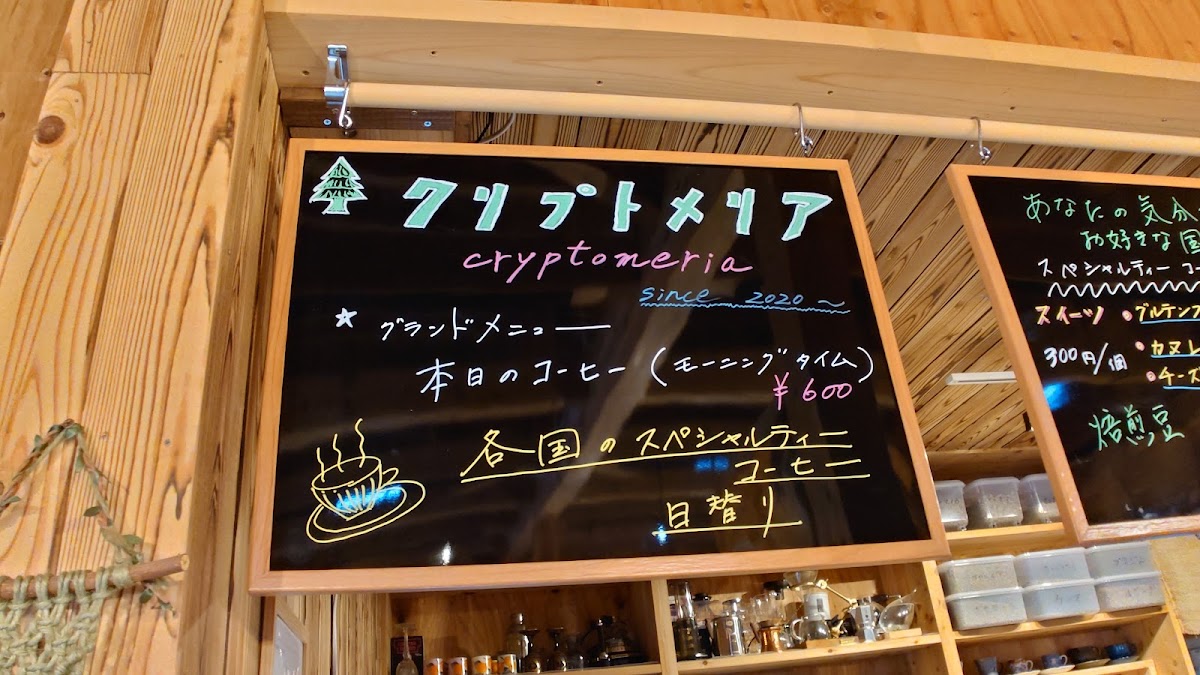 クリプトメリア
cryptomeria
since 2020~
☆ グランドメニュー
本日のコーヒー(モーニングタイム)
¥600
各国のスペシャルティー
コーヒー
日替り
あなたの気分
お好きな国
スペシャルティーコ
スイーツ
グルテンフ
300円/個
カヌレ
チーズ
焙煎豆